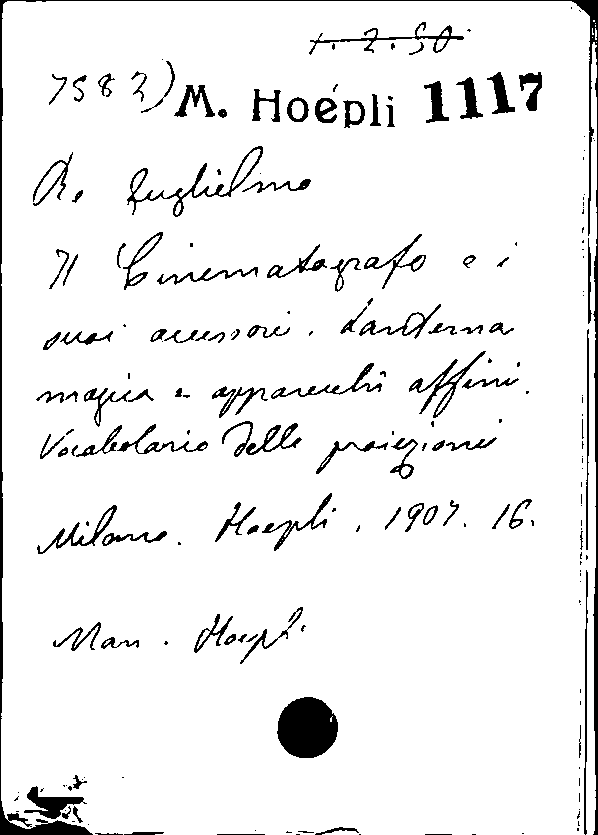 1. 2. 50
7582) M. Hoépli 1117
Re Guglielmo
Il Cinematografo e i
suoi acessori. Lanterna
magica e apparecchi affini.
Vocabolario delle proiezioni
Milano. Hoepli. 1907. 16.
Man. Hoepli